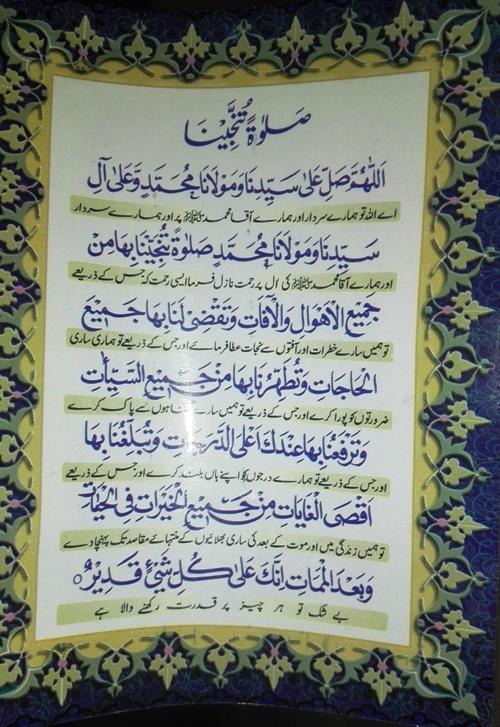 صَلٰوۃً تُنَجِّیْنَا
اَللّٰھُمَّ صَلِّ عَلٰی سَیِّدِنَا وَمَوْلَانَا مُحَمَّدٍ وَّعَلٰی اٰلِ
اے اللہ تو ہمارے سردار اور ہمارے آقا محمد ﷺ پر اور ہمارے سردار
سَیِّدِنَا وَمَوْلَانَا مُحَمَّدٍ صَلٰوۃً تُنَجِّیْنَا بِھَا مِنْ
اور ہمارے آقا محمد ﷺ کی ال پر رحمت نازل فرما ایسی رحمت کہ جس کے ذریعے
جَمِیْعِ الْاَھْوَالِ وَالْاٰفَاتِ وَتَقْضِیْ لَنَا بِھَا جَمِیْعَ
تو ہمیں سارے خطرات اور آفتوں سے نجات عطا فرمائے اور جس کے ذریعے تو ہماری ساری
الْحَاجَاتِ وَتُطَھِّرُنَا بِھَا مِنْ جَمِیْعِ السَّیِّاٰتِ
ضرورتوں کو پورا کرے اور جس کے ذریعے تو ہمیں سارے گناہوں سے پاک کرے
وَتَرْفَعُنَا بِھَا عِنْدَكَ اَعْلَی الدَّرَجَاتِ وَتُبَلِّغُنَا بِھَا
اور جس کے ذریعے تو ہمارے درجوں کو اپنے ہاں بلند کرے اور جس کے ذریعے
اَقْصَی الْغَایَاتِ مِنْ جَمِیْعِ الْخَیْرَاتِ فِی الْحَیَاتِ
تو ہمیں زندگی میں اور موت کے بعد کی ساری بھلائیوں کے منتہائے مقاصد تک پہنچا دے
وَبَعْدَ الْمَمَاتِ اِنَّكَ عَلٰی كُلِّ شَیْءٍ قَدِیْرٌ ○
بے شک تو ہر چیز پر قدرت رکھنے والا ہے